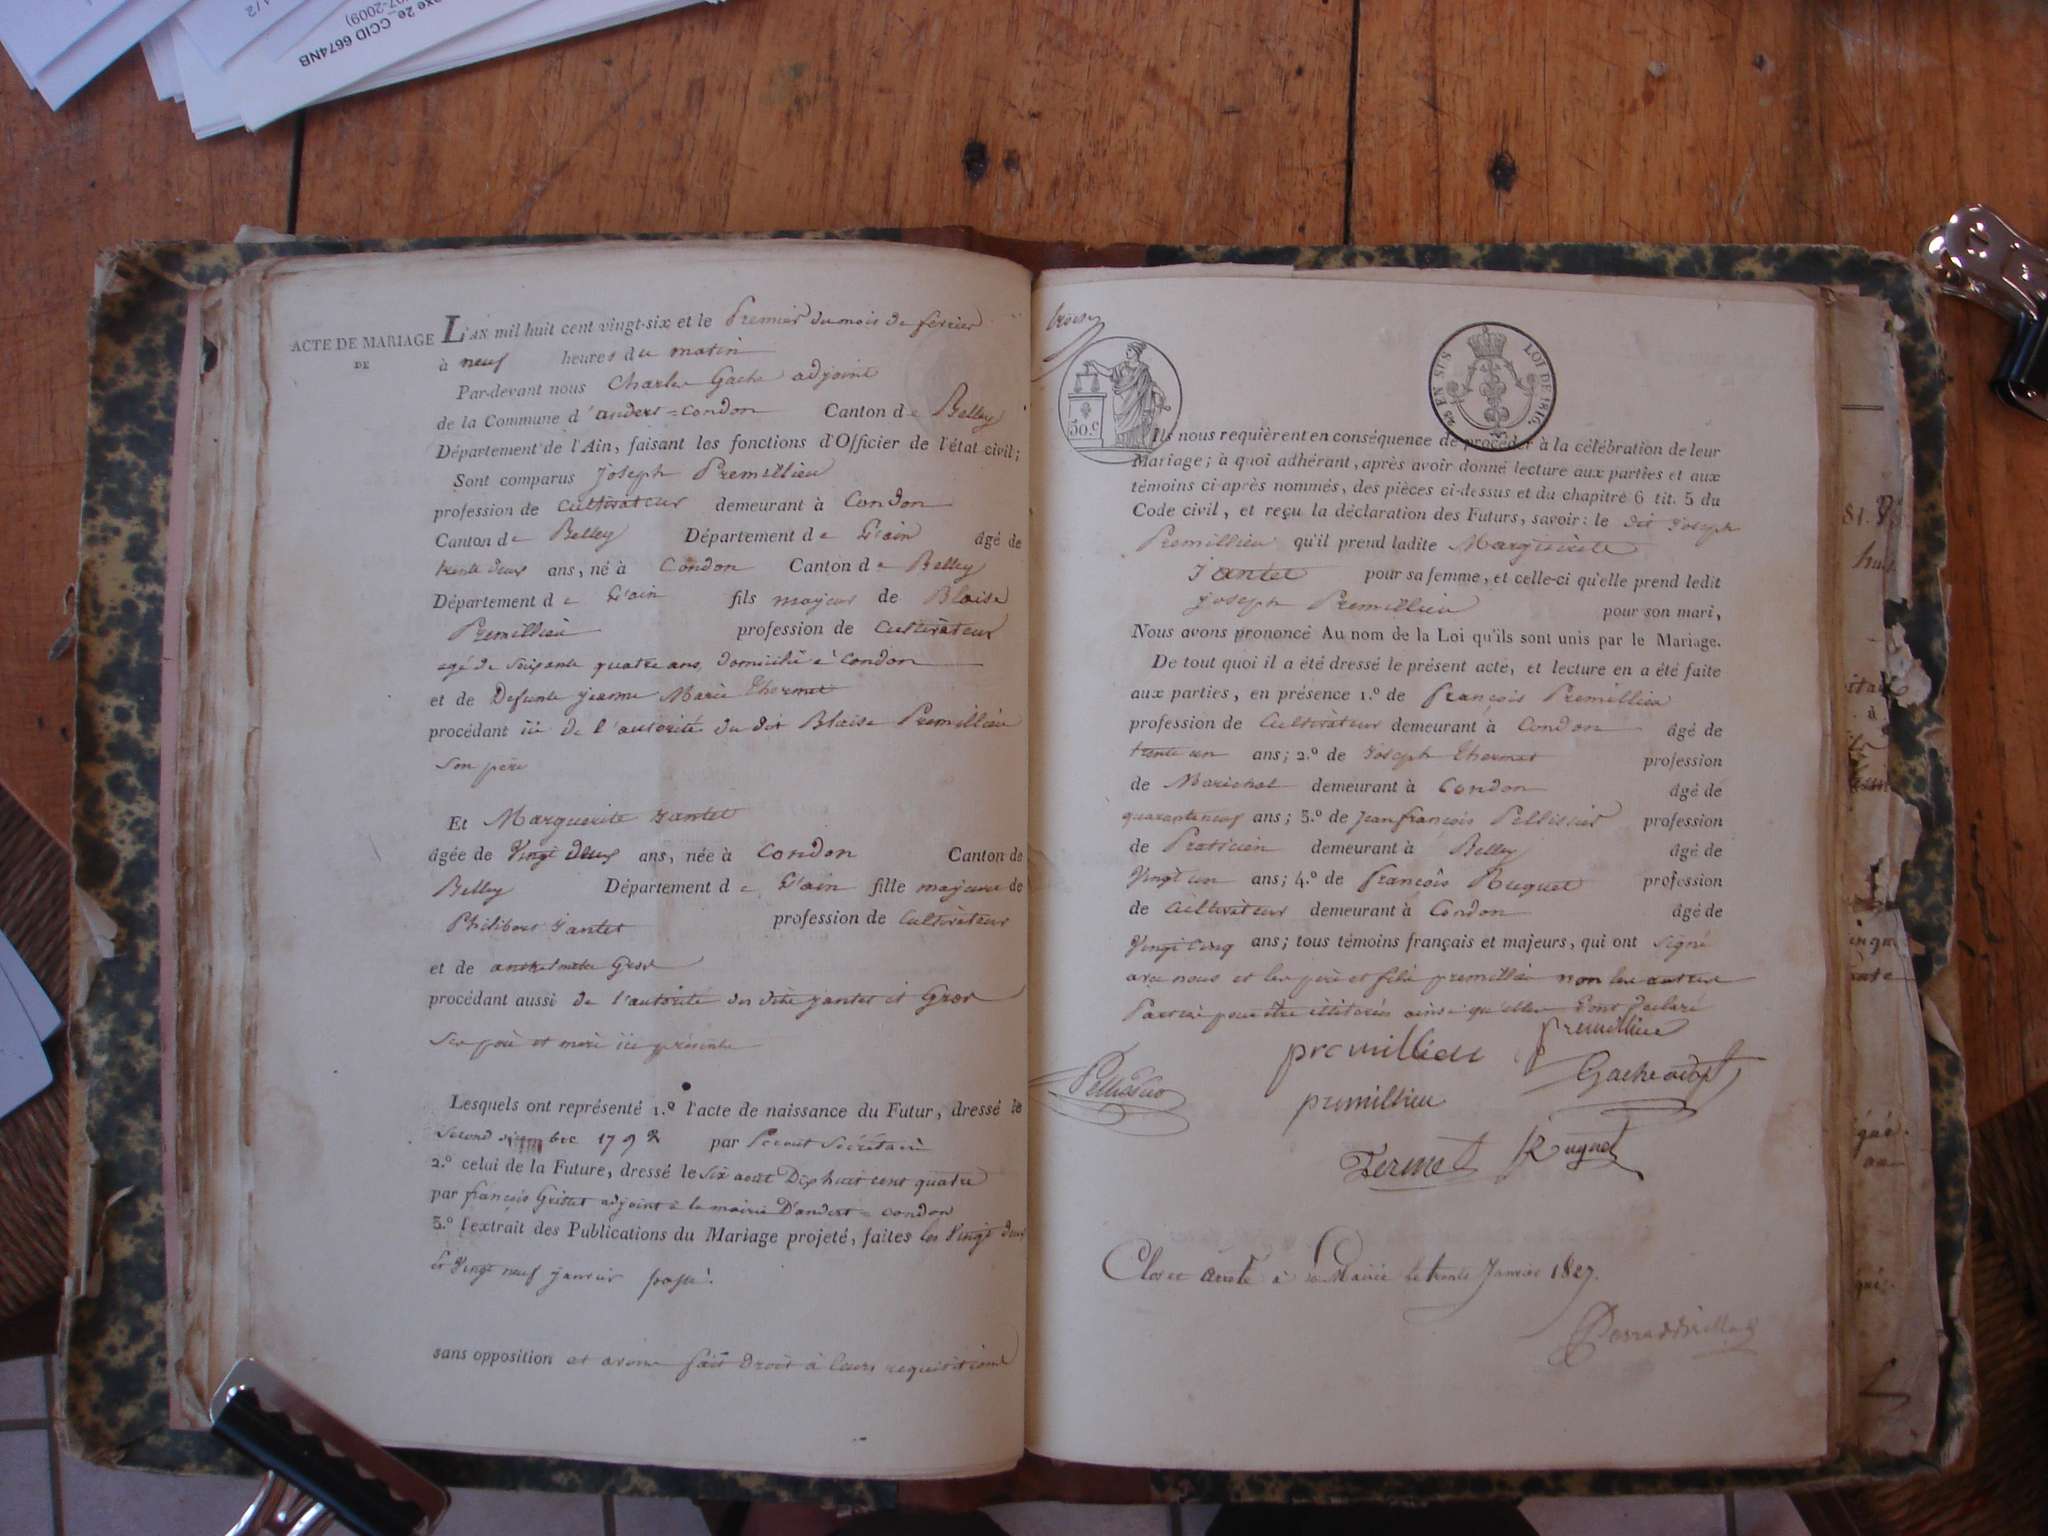 exe 2e_CCID 6674NB
07-2009)
ACTE DE MARIAGE
DE
L'AN mil huit cent vingt-six et le Premier du mois de fevrier
à neuf heures du matin
Par-devant nous Charles Gache adjoint
de la Commune d'andert=condon Canton de Belley
Département de l'Ain, faisant les fonctions d'Officier de l'état civil;
Sont comparus Joseph Premillieu
profession de Cultivateur demeurant à Condon
Canton de Belley Département de L'ain âgé de
trente deux ans, né à Condon Canton de Belley
Département de L'ain fils majeur de Blaise
Premillieu profession de Cultivateur
agé de Soixante quatre ans, domicilié à Condon
et de Defunte jeanne Marie Thermet
procédant ici de l'autorité du dit Blaise Premillieu
Son père
Et Marguerite Jantet
âgée de Vingt deux ans, née à Condon Canton de
Belley Département de L'ain fille majeure de
Philibert Jantet profession de Cultivateur
et de
procédant aussi de l'autorité des dits jantet et Gros
Ses père et mère ici présents
Lesquels ont représenté 1.º l'acte de naissance du Futur, dressé le
Second 179 par Secrétaire
2.º celui de la Future, dressé le Six aout Dix huit cent quatre
par françois adjoint à la mairie D'andert=condon
3.º l'extrait des Publications du Mariage projeté, faites les Vingt deux
et Vingt neuf janvier passé.
sans opposition et avons fait droit à leurs requisitions
50.c
EN SUS
LOI DE 1816.
Ils nous requièrent en conséquence de procéder à la célébration de leur
Mariage; à quoi adhérant, après avoir donné lecture aux parties et aux
témoins ci-après nommés, des pièces ci-dessus et du chapitre 6 tit. 5 du
Code civil, et reçu la déclaration des Futurs, savoir: le dit Joseph
Premillieu qu'il prend ladite Marguerite
Jantet pour sa femme, et celle-ci qu'elle prend ledit
joseph Premillieu pour son mari,
Nous avons prononcé Au nom de la Loi qu'ils sont unis par le Mariage.
De tout quoi il a été dressé le présent acte, et lecture en a été faite
aux parties, en présence 1.º de François Premillieu
profession de Cultivateur demeurant à Condon âgé de
trente un ans; 2.º de Joseph Thermet profession
de Marichal demeurant à Condon âgé de
quarante neuf ans; 3.º de Jean françois Pellissier profession
de Praticien demeurant à Belley âgé de
Vingt un ans; 4.º de françois Ruguet profession
de Cultivateur demeurant à Condon âgé de
Vingt cinq ans; tous témoins français et majeurs, qui ont signé
avec nous et les père et fils premillieu non les autres
Parties pour être illiterés ainsi qu'elles l'ont Declaré
premillieu premillieu
Gache adjt
premillieu
Termet Ruguet
Clos et arreté à la Mairie le trente Janvier 1827.